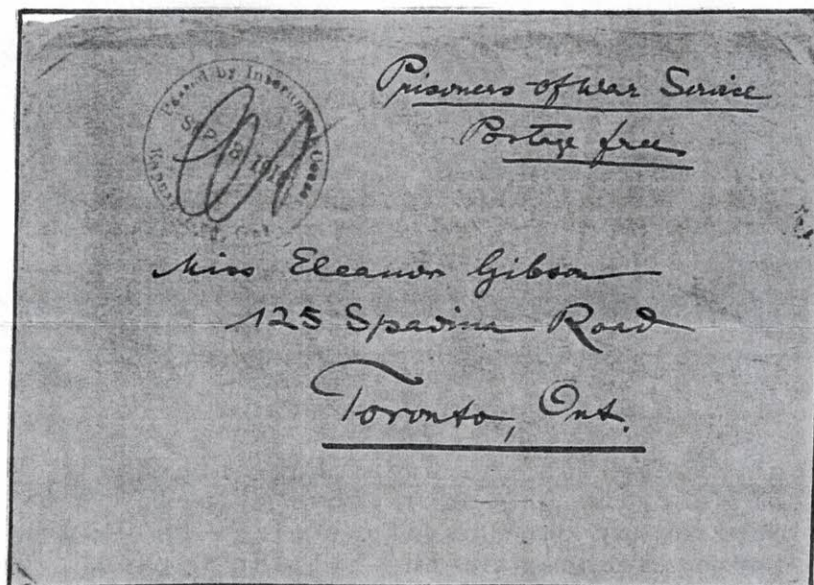 Passed by Internment Censor
SEP 18 191
Ont.
Prisoners of War Service
Postage free
Miss Eleanor Gibson
125 Spadina Road
Toronto, Ont.